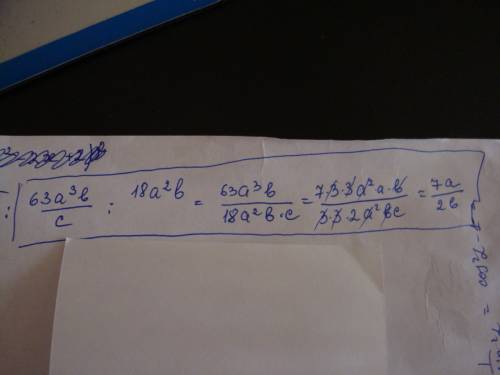 63a³b/c : 18a²b = 63a³b/18a²b·c = 7·3·3a²a·b/3·3·2a²bc = 7a/2b